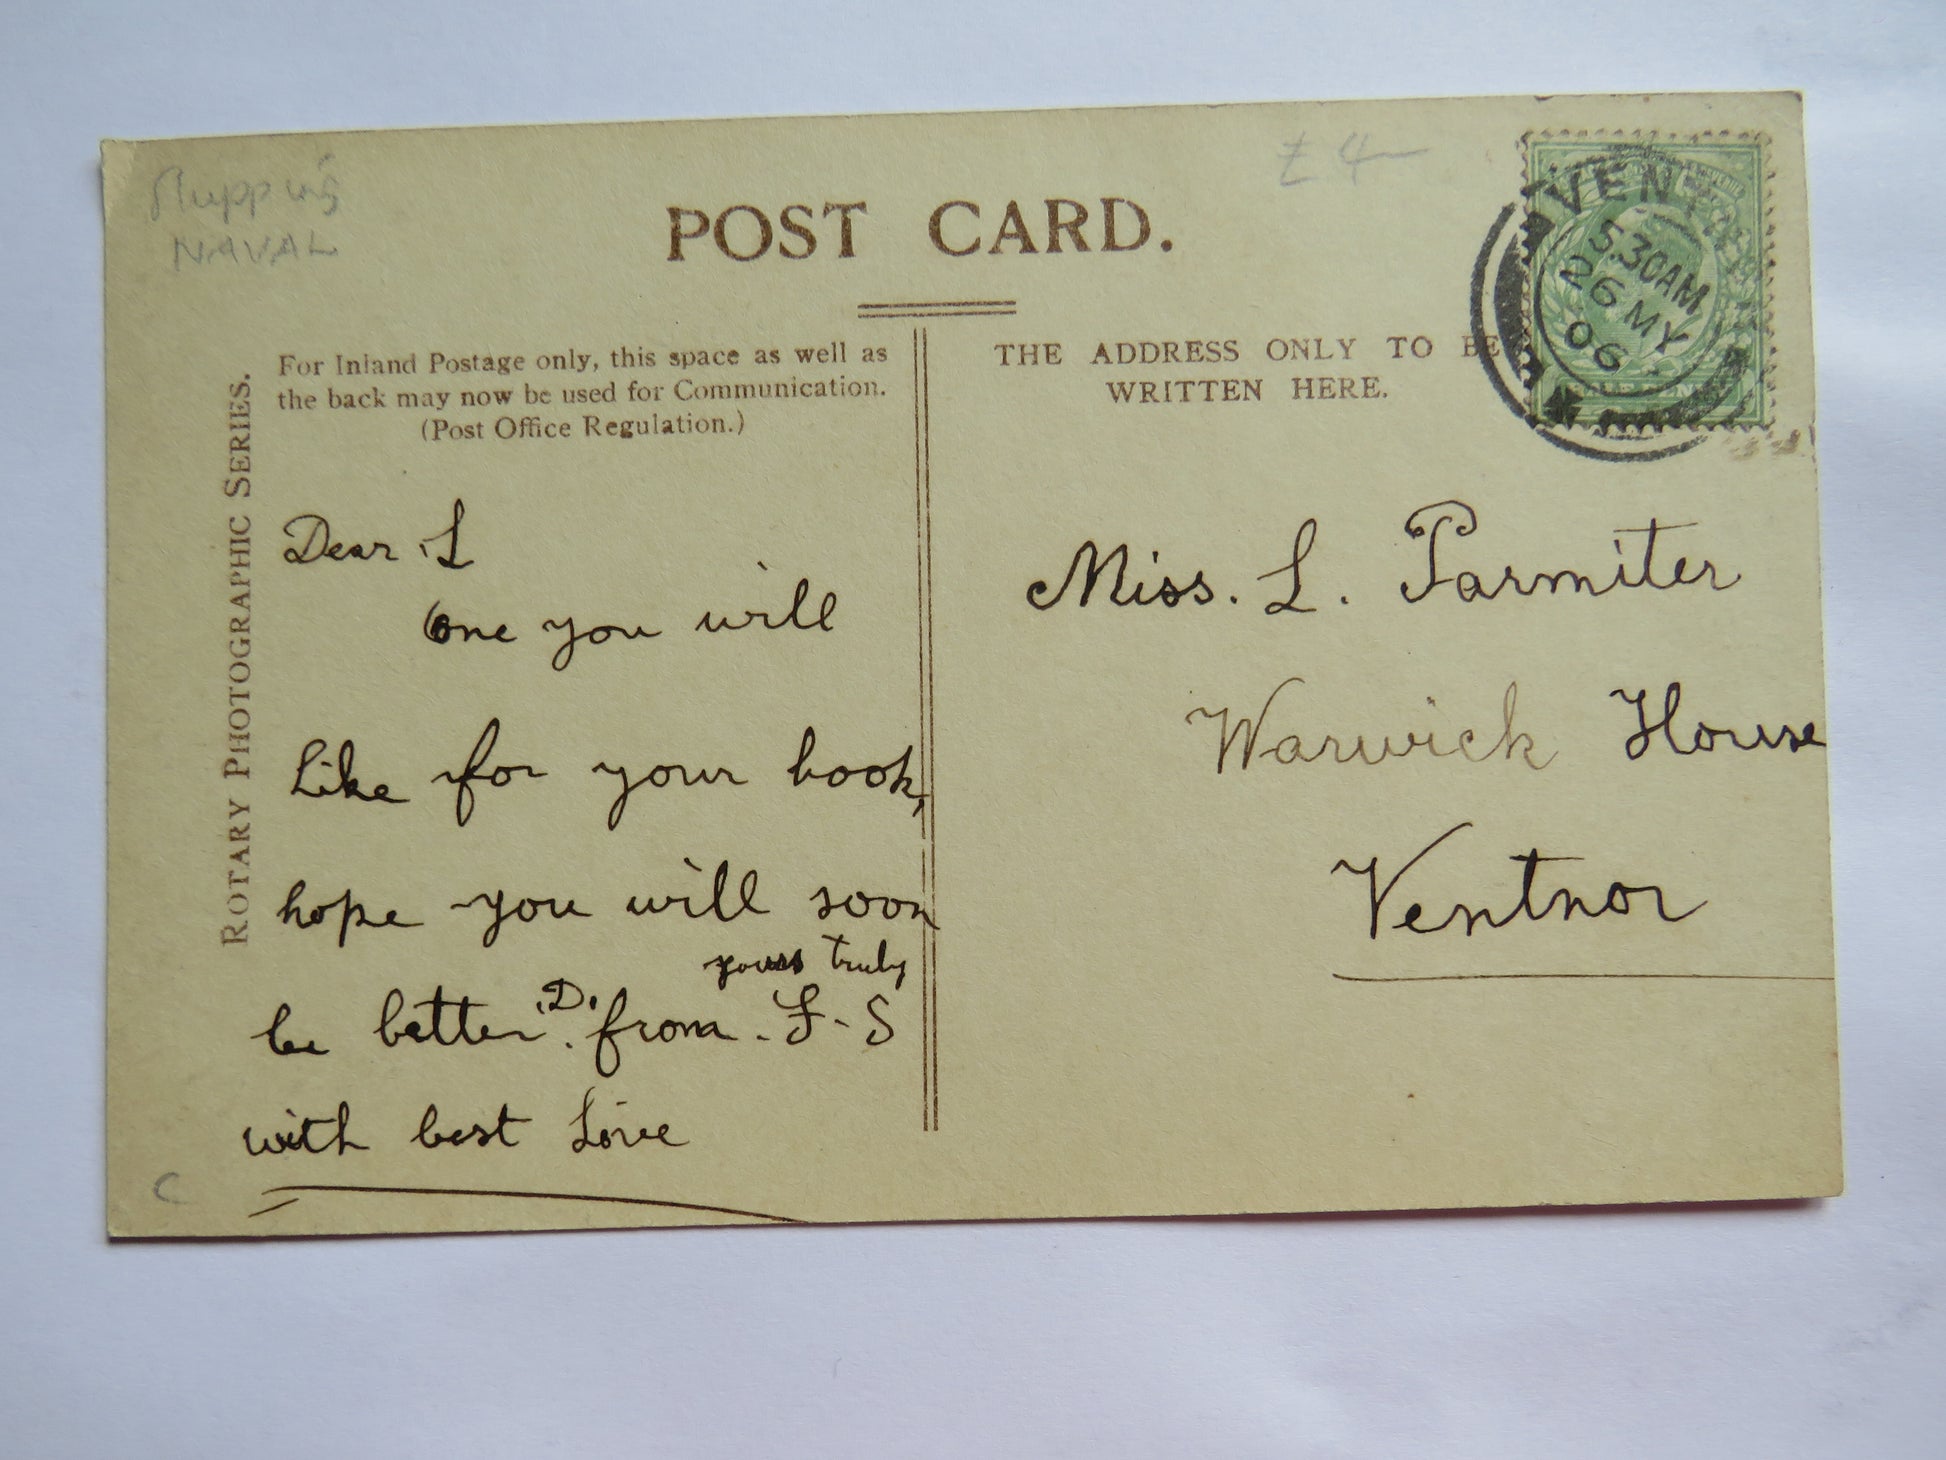 Shipping
NAVAL
£4-
POST CARD.
For Inland Postage only, this space as well as
the back may now be used for Communication.
(Post Office Regulation.)
THE ADDRESS ONLY TO BE
WRITTEN HERE.
5.30AM
26 MY
06
ROTARY PHOTOGRAPHIC SERIES.
Dear L
One you will
Like for your book,
hope you will soon
yours truly
be better .D. from. F-S
with best Love
Miss. L. Parmiter
Warwick House
Ventnor
C